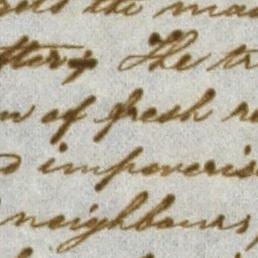 the ma
after The tr
of fresh re
impoveris
neighbours,